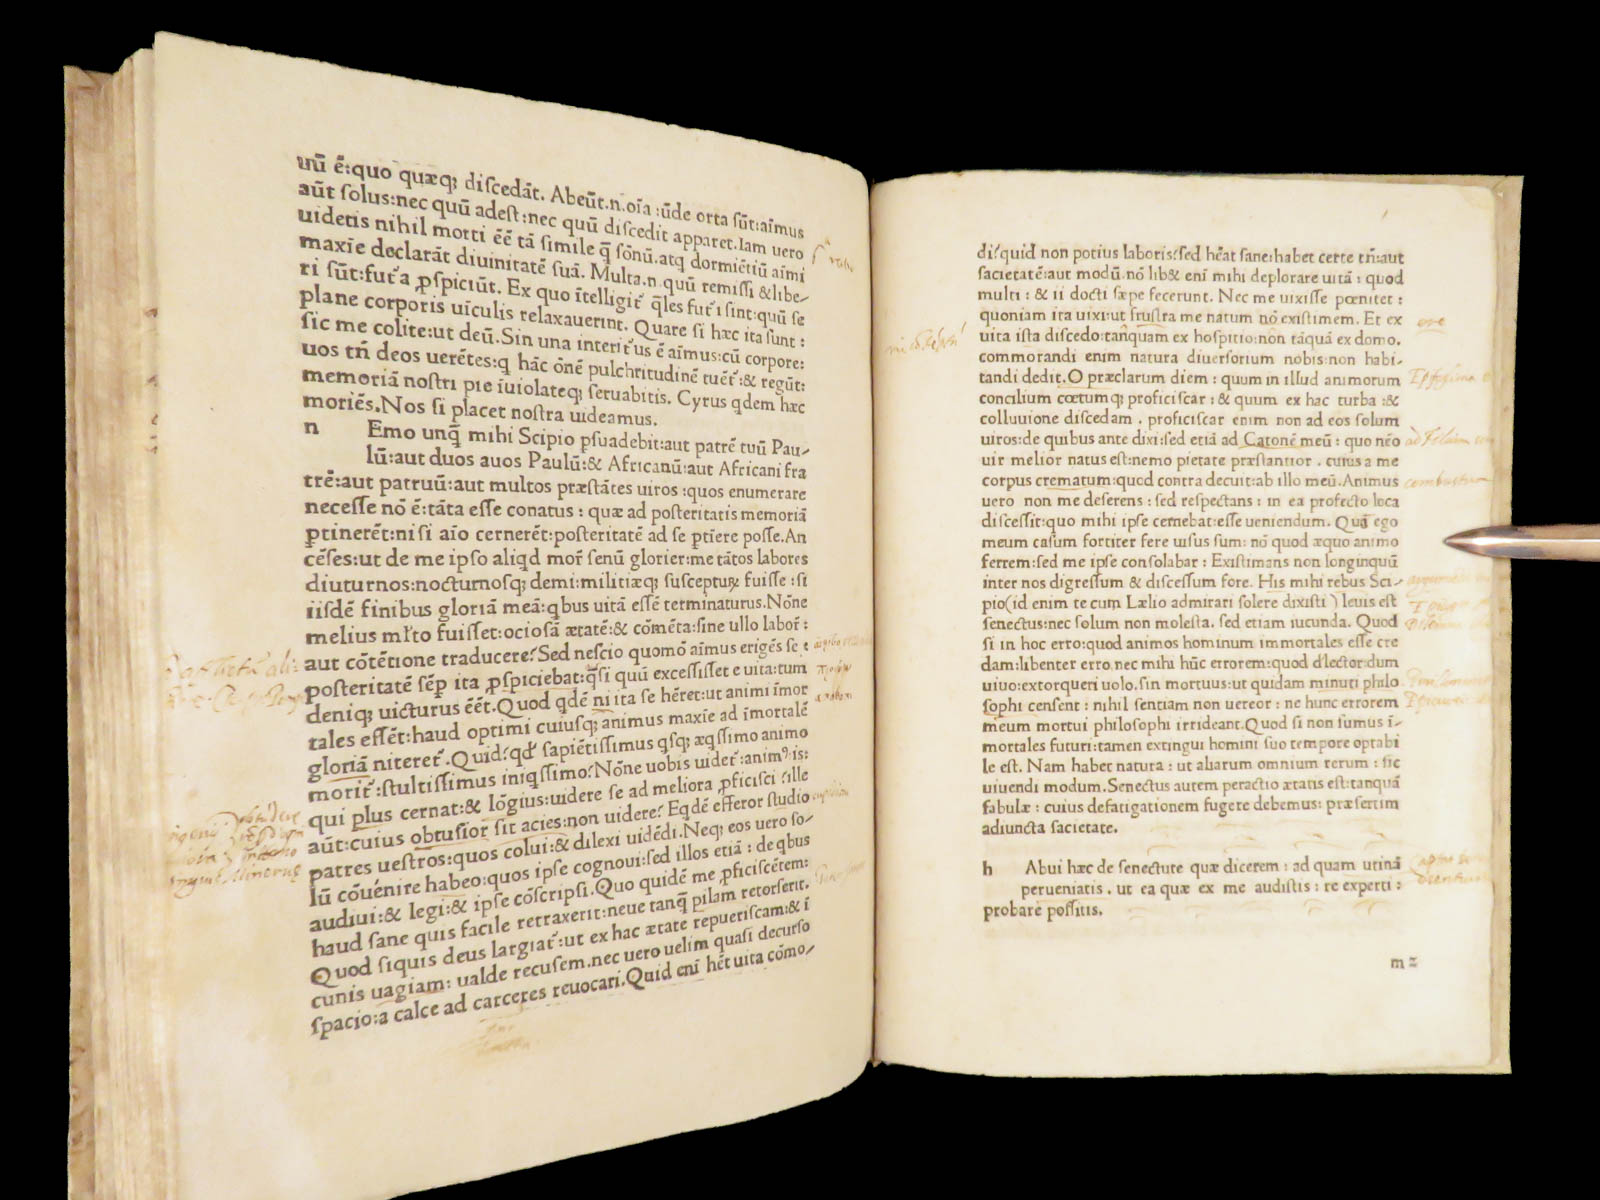 uū ē:quo quæq; discedāt. Abeūt.n.oīa :ūde orta sūt:aīmus
aūt solus:nec quū adest:nec quū discedit apparet.Iam uero
uidetis nihil morti ēē tā simile q̄ sōnū.atq dormiētiū aīmi
maxīe declarāt diuinitatē suā. Multa.n.quū remissi &libe-
ri sūt:fut'a ꝑspiciūt. Ex quo ītelligit' q̄les fut'i sint:quū se
plane corporis uīculis relaxauerint. Quare si hæc ita sunt :
sic me colite:ut deū.Sin una interit'us ē aīmus:cū corpore:
uos tn̄ deos uerētes:q hāc ōnē pulchritudinē tuēt':& regūt:
memoriā nostri pie īuiolateq; seruabitis. Cyrus qdem hæc
moriēs.Nos si placet nostra uideamus.
n Emo unq̄ mihi Scipio ꝑsuadebit:aut patrē tuū Pau-
lū:aut duos auos Paulū:& Africanū:aut Africani fra
trē:aut patruū:aut multos præstātes uiros :quos enumerare
necesse nō ē:tāta esse conatus : quæ ad posteritatis memoriā
ꝑtinerēt:nisi aīo cernerēt:posteritatē ad se ꝑtīere posse.An
cēses:ut de me ipso aliqd mor' senū glorier:me tātos labores
diuturnos:nocturnosq; demi:militiæq; susceptuꝝ fuisse :si
iisdē finibus gloriā meā:qbus uitā essē terminaturus.Nōne
melius mlto fuisset:ociosā ætatē:& cōmēta:sine ullo labor' :
aut cōtētione traducere? Sed nescio quomō aīmus erigēs se :
posteritatē sēꝑ ita ꝓspiciebat:qsi quū excessisset e uita:tum
deniq; uicturus ēēt.Quod qdē ni ita se hēret:ut animi īmor
tales essēt:haud optimi cuiusq; animus maxīe ad īmortalē
gloriā niteret'. Quid? qd' sapiētissimus qsq; æqssimo animo
morit':stultissimus iniqssimo? Nōne uobis uidet':anim9 is:
qui plus cernat:& lōgius:uidere se ad meliora ꝓficisci ?ille
aūt:cuius obtusior sit acies:non uidere? Eqdē efferor studio
patres uestros:quos colui:& dilexi uidēdi.Neq; eos uero so-
lū cōuēnire habeo:quos ipse cognoui:sed illos etiā : de qbus
audiui:& legi:& ipse cōscripsi. Quo quidē me ꝓficiscētem:
haud sane quis facile retraxerit:neue tanq̄ pilam retorserit.
Quod siquis deus largiat':ut ex hac ætate repueriscam:& ī
cunis uagiam: ualde recusem.nec uero uelim quasi decurso
spacio:a calce ad carceres reuocari.Quid enī hēt uita cōmo-
di?quid non potius laboris?sed hēat sane:habet certe tn̄:aut
sacietatē:aut modū.nō lib& enī mihi deplorare uitā : quod
multi : & ii docti sæpe fecerunt. Nec me uixisse pœnitet :
quoniam ita uixi:ut frustra me natum nō existimem. Et ex
uita ista discedo:tanquam ex hospitio:nōn tāquā ex domo.
commorandi enim natura diuersorium nobis:non habi-
tandi dedit.O præclarum diem : quum in illud animorum
concilium cœtumq; proficiscar : & quum ex hac turba :&
colluuione discedam . proficiscar enim non ad eos solum
uiros:de quibus ante dixi:sed etiā ad Catonē meū : quo nēo
uir melior natus est:nemo pietate præstantior . cuius a me
corpus crematum:quod contra decuit:ab illo meū.Animus
uero non me deserens : sed respectans : in ea profecto loca
discessit:quo mihi ipse cernebat:esse ueniendum. Quē ego
meum casum fortiter ferre uisus sum: nō quod æquo animo
ferrem:sed me ipse consolabar : Existimans non longinquū
inter nos digressum & discessum fore. His mihi rebus Sci-
pio(id enim te cum Lælio admirari solere dixisti ) leuis est
senectus:nec solum non molesta. sed etiam iucunda. Quod
si in hoc erro:quod animos hominum immortales esse cre
dam:libenter erro.nec mihi hūc errorem:quod d'lector:dum
uiuo:extorqueri uolo.sin mortuus:ut quidam minuti philo
sophi censent : nihil sentiam non uereor : ne hunc errorem
meum mortui philosophi irrideant.Quod si non sumus ī-
mortales futuri:tamen extingui homini suo tempore optabi
le est. Nam habet natura : ut aliarum omnium rerum : sic
uiuendi modum.Senectus autem peractio ætatis est:tanquā
fabulæ : cuius defatigationem fugere debemus: præsertim
adiuncta sacietate.
h Abui hæc de senecture quæ dicerem : ad quam utinā
perueniatis . ut ea quæ ex me audistis : re experti :
probare possitis.
m 2